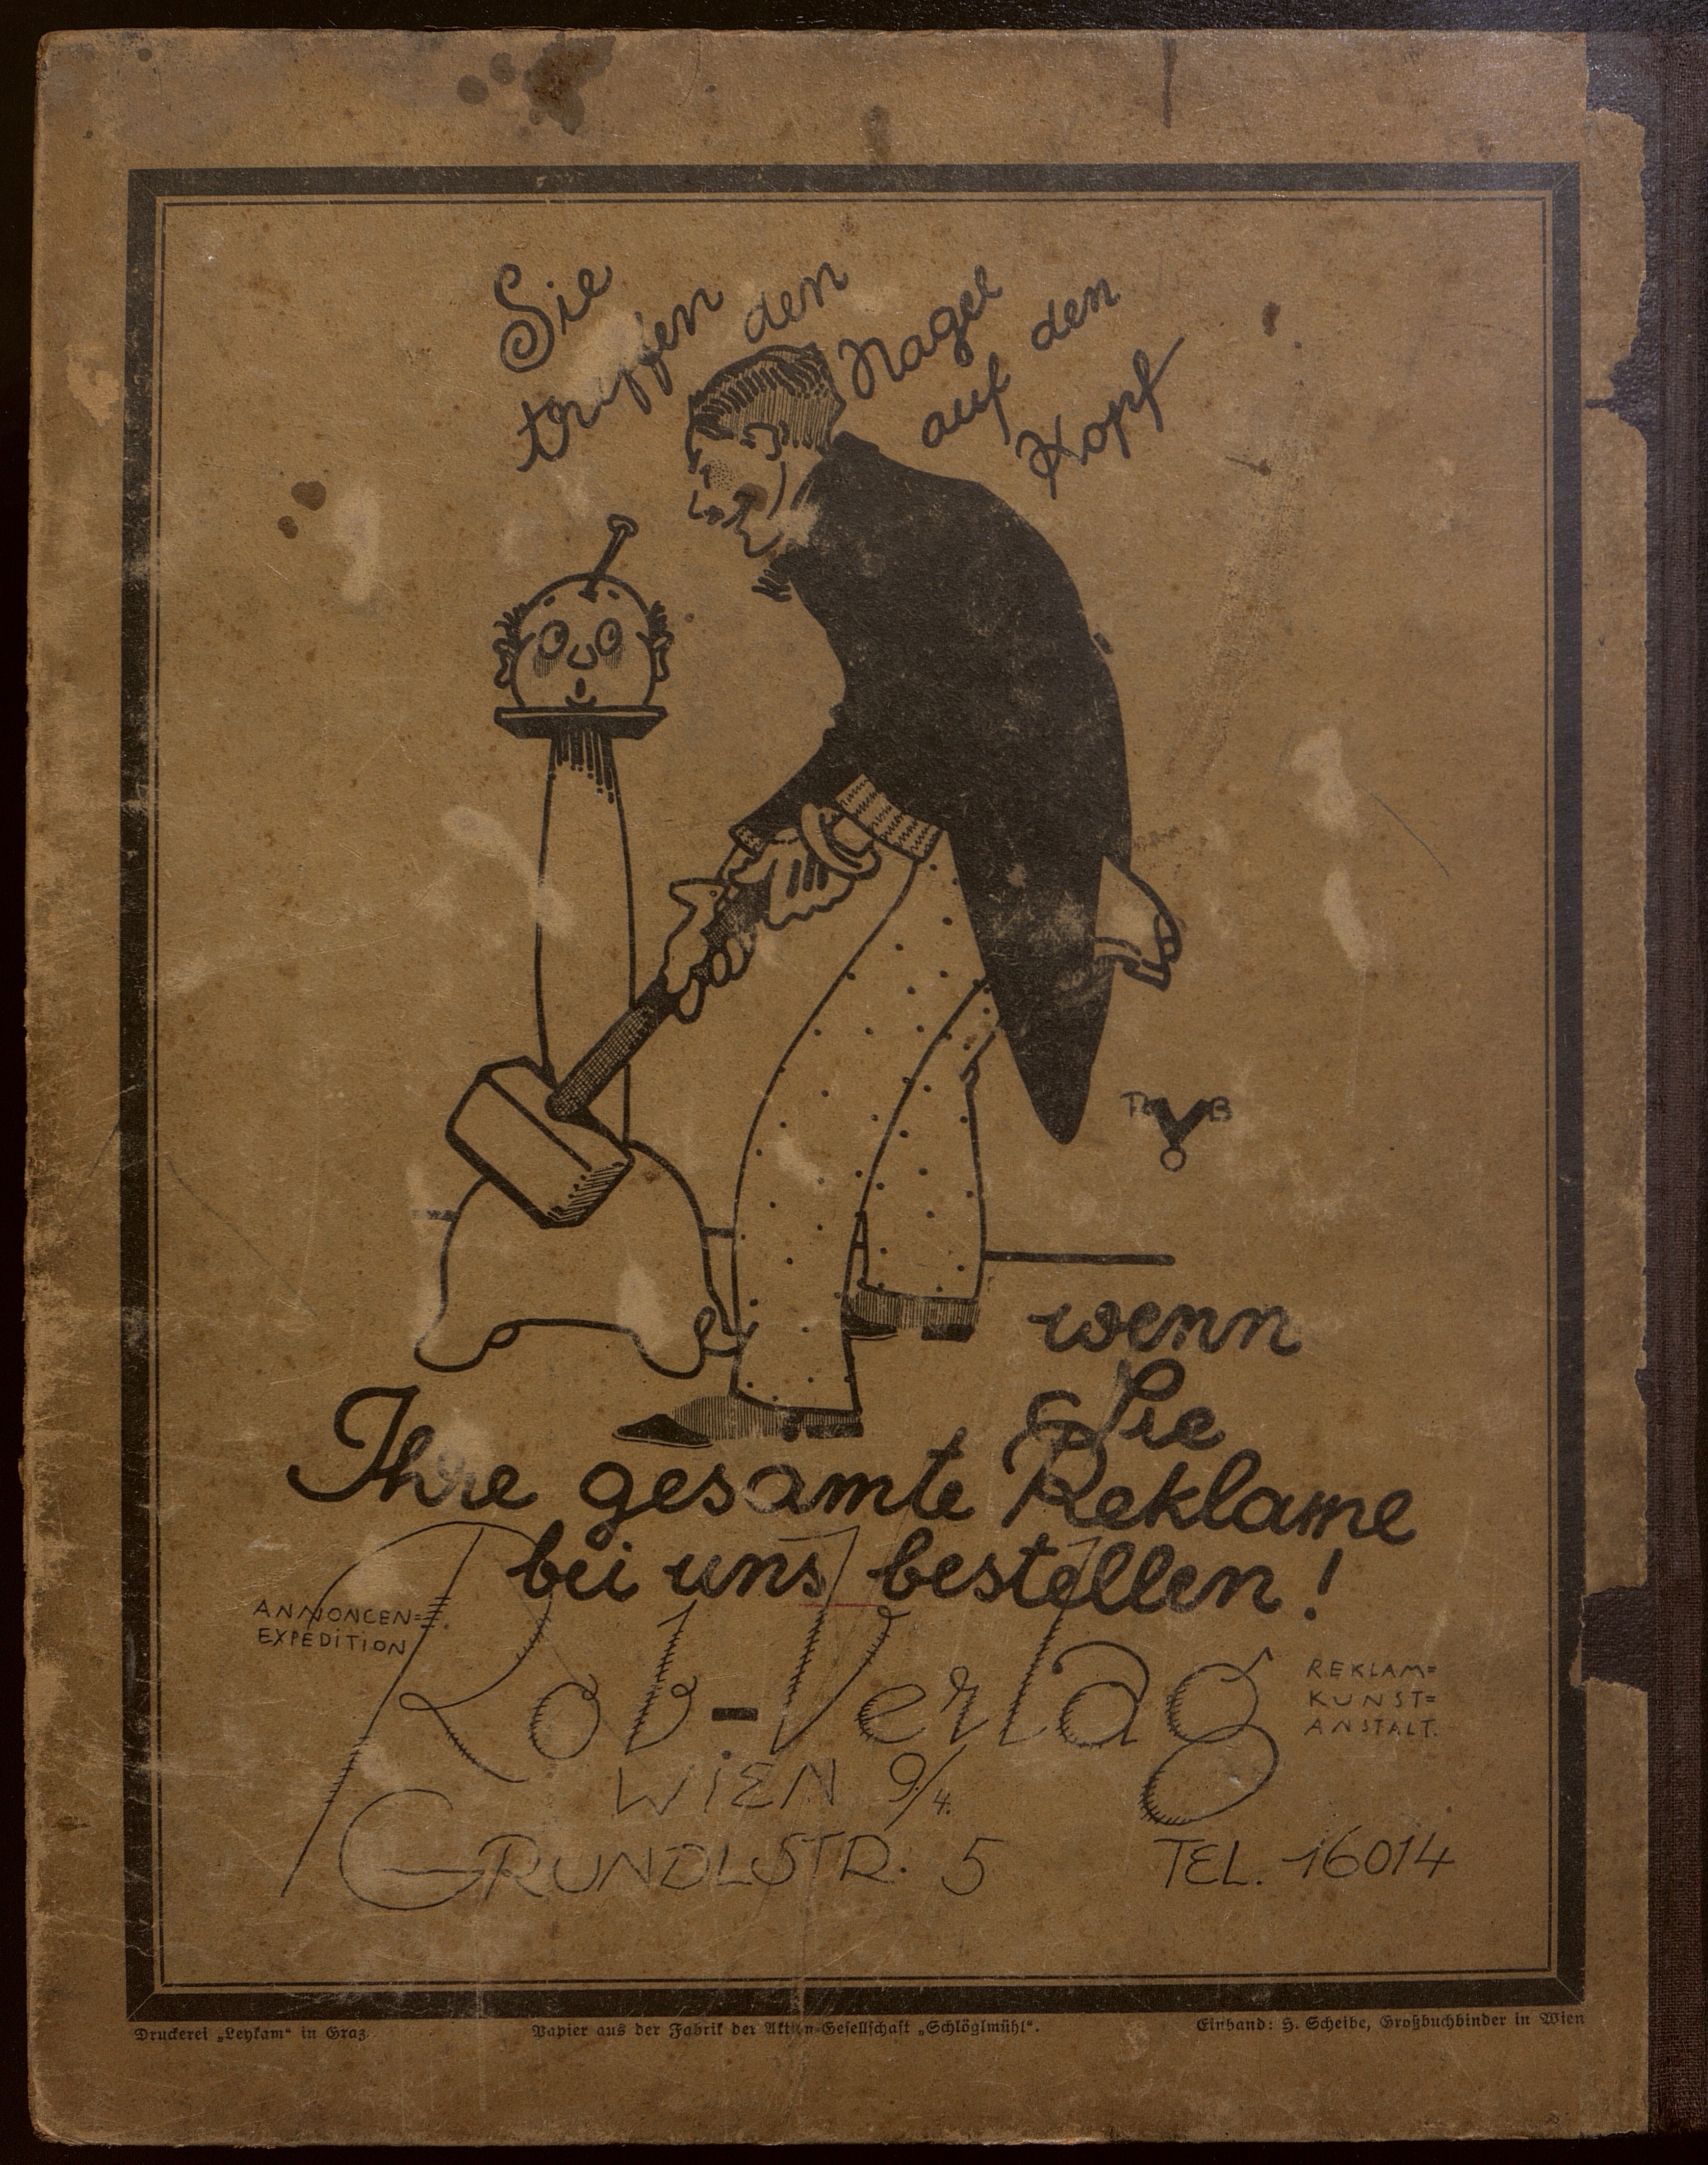 Sie
treffen den
Nagel
auf den
Kopf
wenn
Sie
Ihre gesamte Reklame
bei uns bestellen!
ANNONCEN=
EXPEDITION
Rob-Verlag
REKLAM=
KUNST=
ANSTALT.
WIEN 9/4.
GRUNDLSTR. 5 TEL. 16014
Druckerei „Leykam“ in Graz. Papier aus der Fabrik der Aktien-Gesellschaft „Schlöglmühl“. Einband: H. Scheibe, Großbuchbinder in Wien